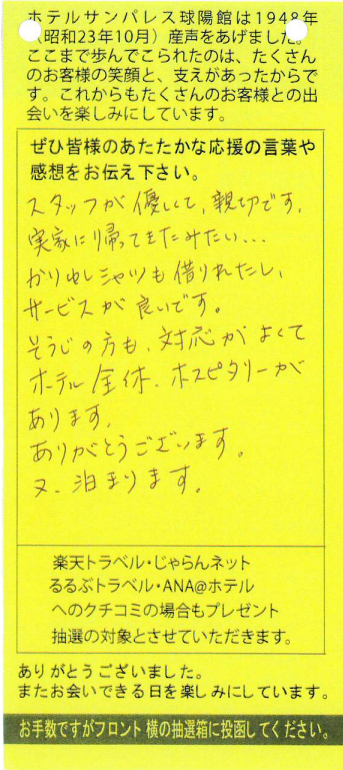 ホテルサンパレス球陽館は1948年
（昭和23年10月）産声をあげました。
ここまで歩んでこられたのは、たくさん
のお客様の笑顔と、支えがあったからで
す。これからもたくさんのお客様との出
会いを楽しみにしています。
ぜひ皆様のあたたかな応援の言葉や
感想をお伝え下さい。
スタッフが優しくて、親切です。
実家に帰ってきたみたい...
かりゆしシャツも借りれたし、
サービスが良いです。
そうじの方も、対応がよくて
ホテル全体、ホスピタリーが
あります。
ありがとうございます。
又、泊まります。
楽天トラベル・じゃらんネット
るるぶトラベル・ANA@ホテル
へのクチコミの場合もプレゼント
抽選の対象とさせていただきます。
ありがとうございました。
またお会いできる日を楽しみにしています。
お手数ですがフロント横の抽選箱に投函してください。